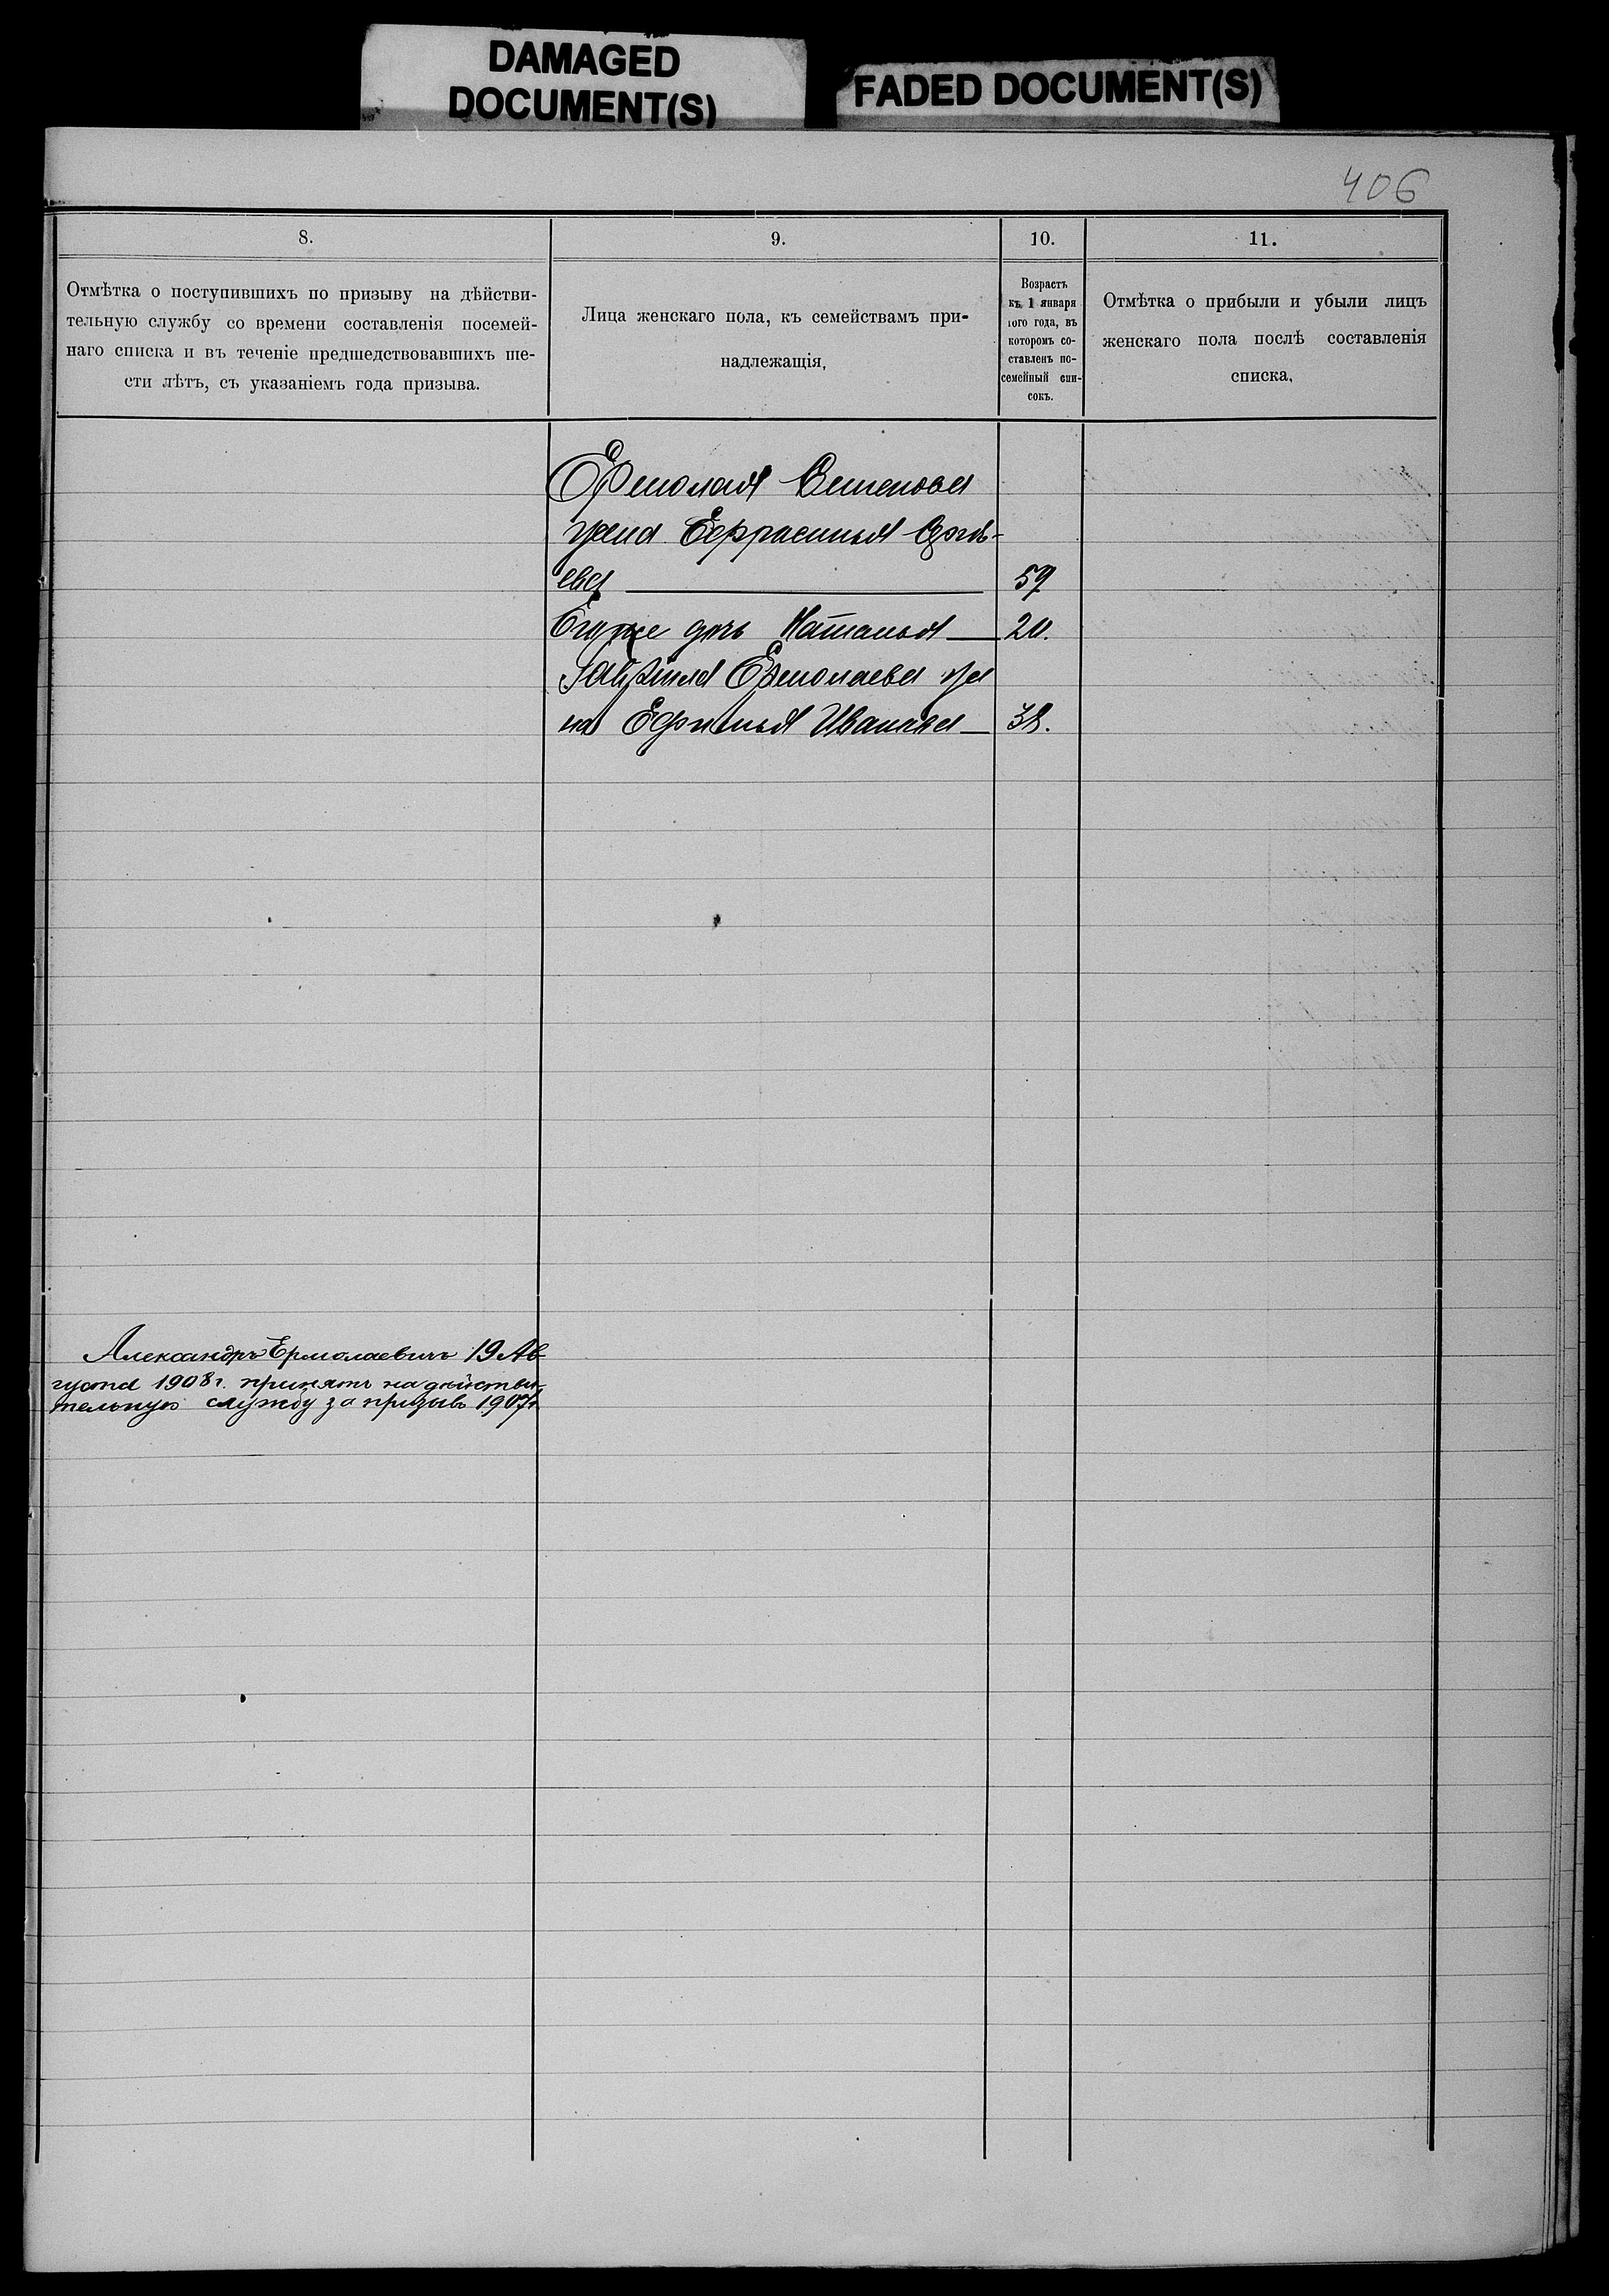 DAMAGED
DOCUMENT(S)
FADED DOCUMENT(S)
406
8.
9.
10.
11.
Отмѣтка о поступившихъ по призыву на дѣйстви-
тельную службу со времени составленія посемей-
наго списка и въ теченіе предшедствовавшихъ ше-
сти лѣтъ, съ указаніемъ года призыва.
Лица женскаго пола, къ семействамъ при-
надлежащія,
Возрастъ
къ 1 января
того года, въ
которомъ со-
ставленъ по-
семейный спи-
сокъ.
Отмѣтка о прибыли и убыли лицъ
женскаго пола послѣ составленія
списка,
Ермолая
жена Ефрасинья
ева 59
Егоже дочь Наталья 20.
Гаврiила Ермолаева же
на Ефимья Иванова 38.
Александръ Ермолаевичъ 19 Ав-
густа 1908 г. принятъ на дѣйстви-
тельную службу за призывъ 1907 г.